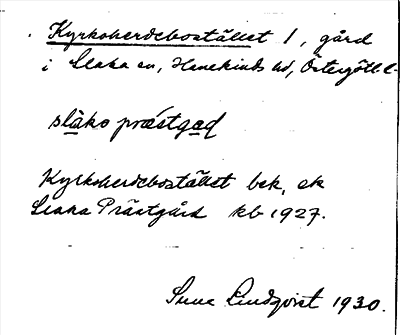 Kyrkoherdebostället 1, gård
i Slaka sn, Hanekinds hd, Östergötl. l.
slàko præstgɑd
Kyrkoherdebostället bek. ek
Slaka Prästgård kb 1927.
Sune Lindqvist 1930.